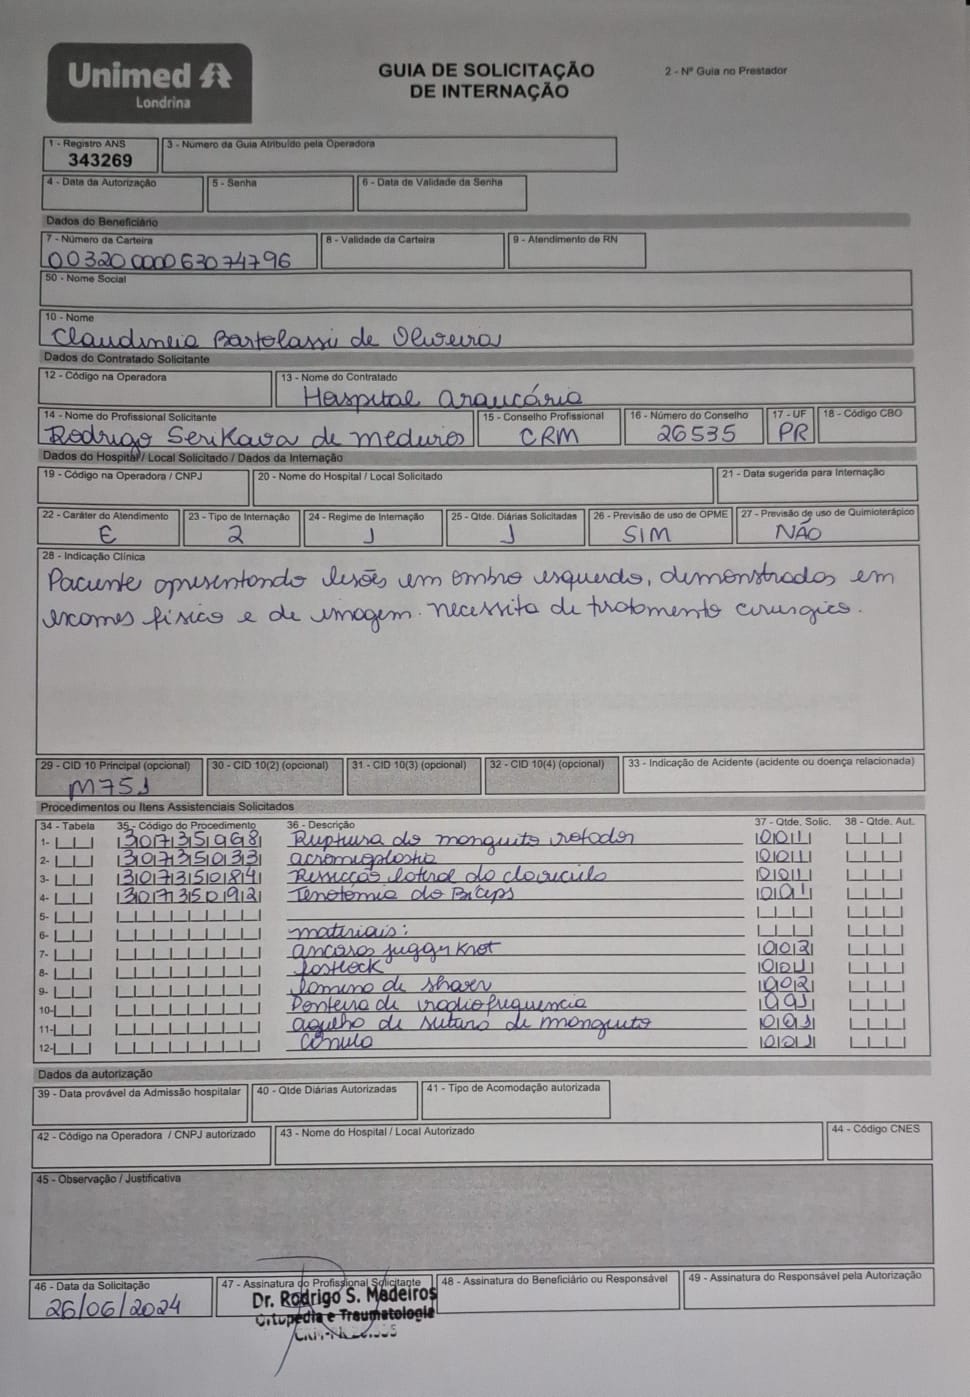 Unimed
Londrina
GUIA DE SOLICITAÇÃO
DE INTERNAÇÃO
2 - Nº Guia no Prestador
1 - Registro ANS
343269
3 - Número da Guia Atribuído pela Operadora
4 - Data da Autorização
5 - Senha
6 - Data de Validade da Senha
Dados do Beneficiário
7 - Número da Carteira
00320000063074796
8 - Validade da Carteira
9 - Atendimento de RN
50 - Nome Social
10 - Nome
Claudineia Bartolassi de Oliveira
Dados do Contratado Solicitante
12 - Código na Operadora
13 - Nome do Contratado
Hospital Araucária
14 - Nome do Profissional Solicitante
Rodrigo Serikava de Medeiros
15 - Conselho Profissional
CRM
16 - Número do Conselho
26535
17 - UF
PR
18 - Código CBO
Dados do Hospital / Local Solicitado / Dados da Internação
19 - Código na Operadora / CNPJ
20 - Nome do Hospital / Local Solicitado
21 - Data sugerida para Internação
22 - Caráter do Atendimento
E
23 - Tipo de Internação
2
24 - Regime de Internação
1
25 - Qtde. Diárias Solicitadas
1
26 - Previsão de uso de OPME
SIM
27 - Previsão de uso de Quimioterápico
NÃO
28 - Indicação Clínica
Paciente apresentando lesões em ombro esquerdo, demonstradas em
exames físico e de imagem. necessita de tratamento cirurgico.
29 - CID 10 Principal (opcional)
M751
30 - CID 10(2) (opcional)
31 - CID 10(3) (opcional)
32 - CID 10(4) (opcional)
33 - Indicação de Acidente (acidente ou doença relacionada)
Procedimentos ou Itens Assistenciais Solicitados
34 - Tabela 35 - Código do Procedimento 36 - Descrição 37 - Qtde. Solic. 38 - Qtde. Aut.
1- 30735068 Ruptura do manguito rotador 001
2- 30735033 acromioplastia 001
3- 30735084 Ressecção lateral da clavicula 001
4- 30735092 Tenotomia do Biceps 001
5-
6- materiais:
7- ancoras juggerknot 002
8- 001
9- lamina de shaver 002
10- Ponteira de radiofrequencia 001
11- agulha de sutura de manguito 001
12- Cânula 001
Dados da autorização
39 - Data provável da Admissão hospitalar
40 - Qtde Diárias Autorizadas
41 - Tipo de Acomodação autorizada
42 - Código na Operadora / CNPJ autorizado
43 - Nome do Hospital / Local Autorizado
44 - Código CNES
45 - Observação / Justificativa
46 - Data da Solicitação
26/06/2024
47 - Assinatura do Profissional Solicitante
Dr. Rodrigo S. Medeiros
Ortopedia e Traumatologia
48 - Assinatura do Beneficiário ou Responsável
49 - Assinatura do Responsável pela Autorização